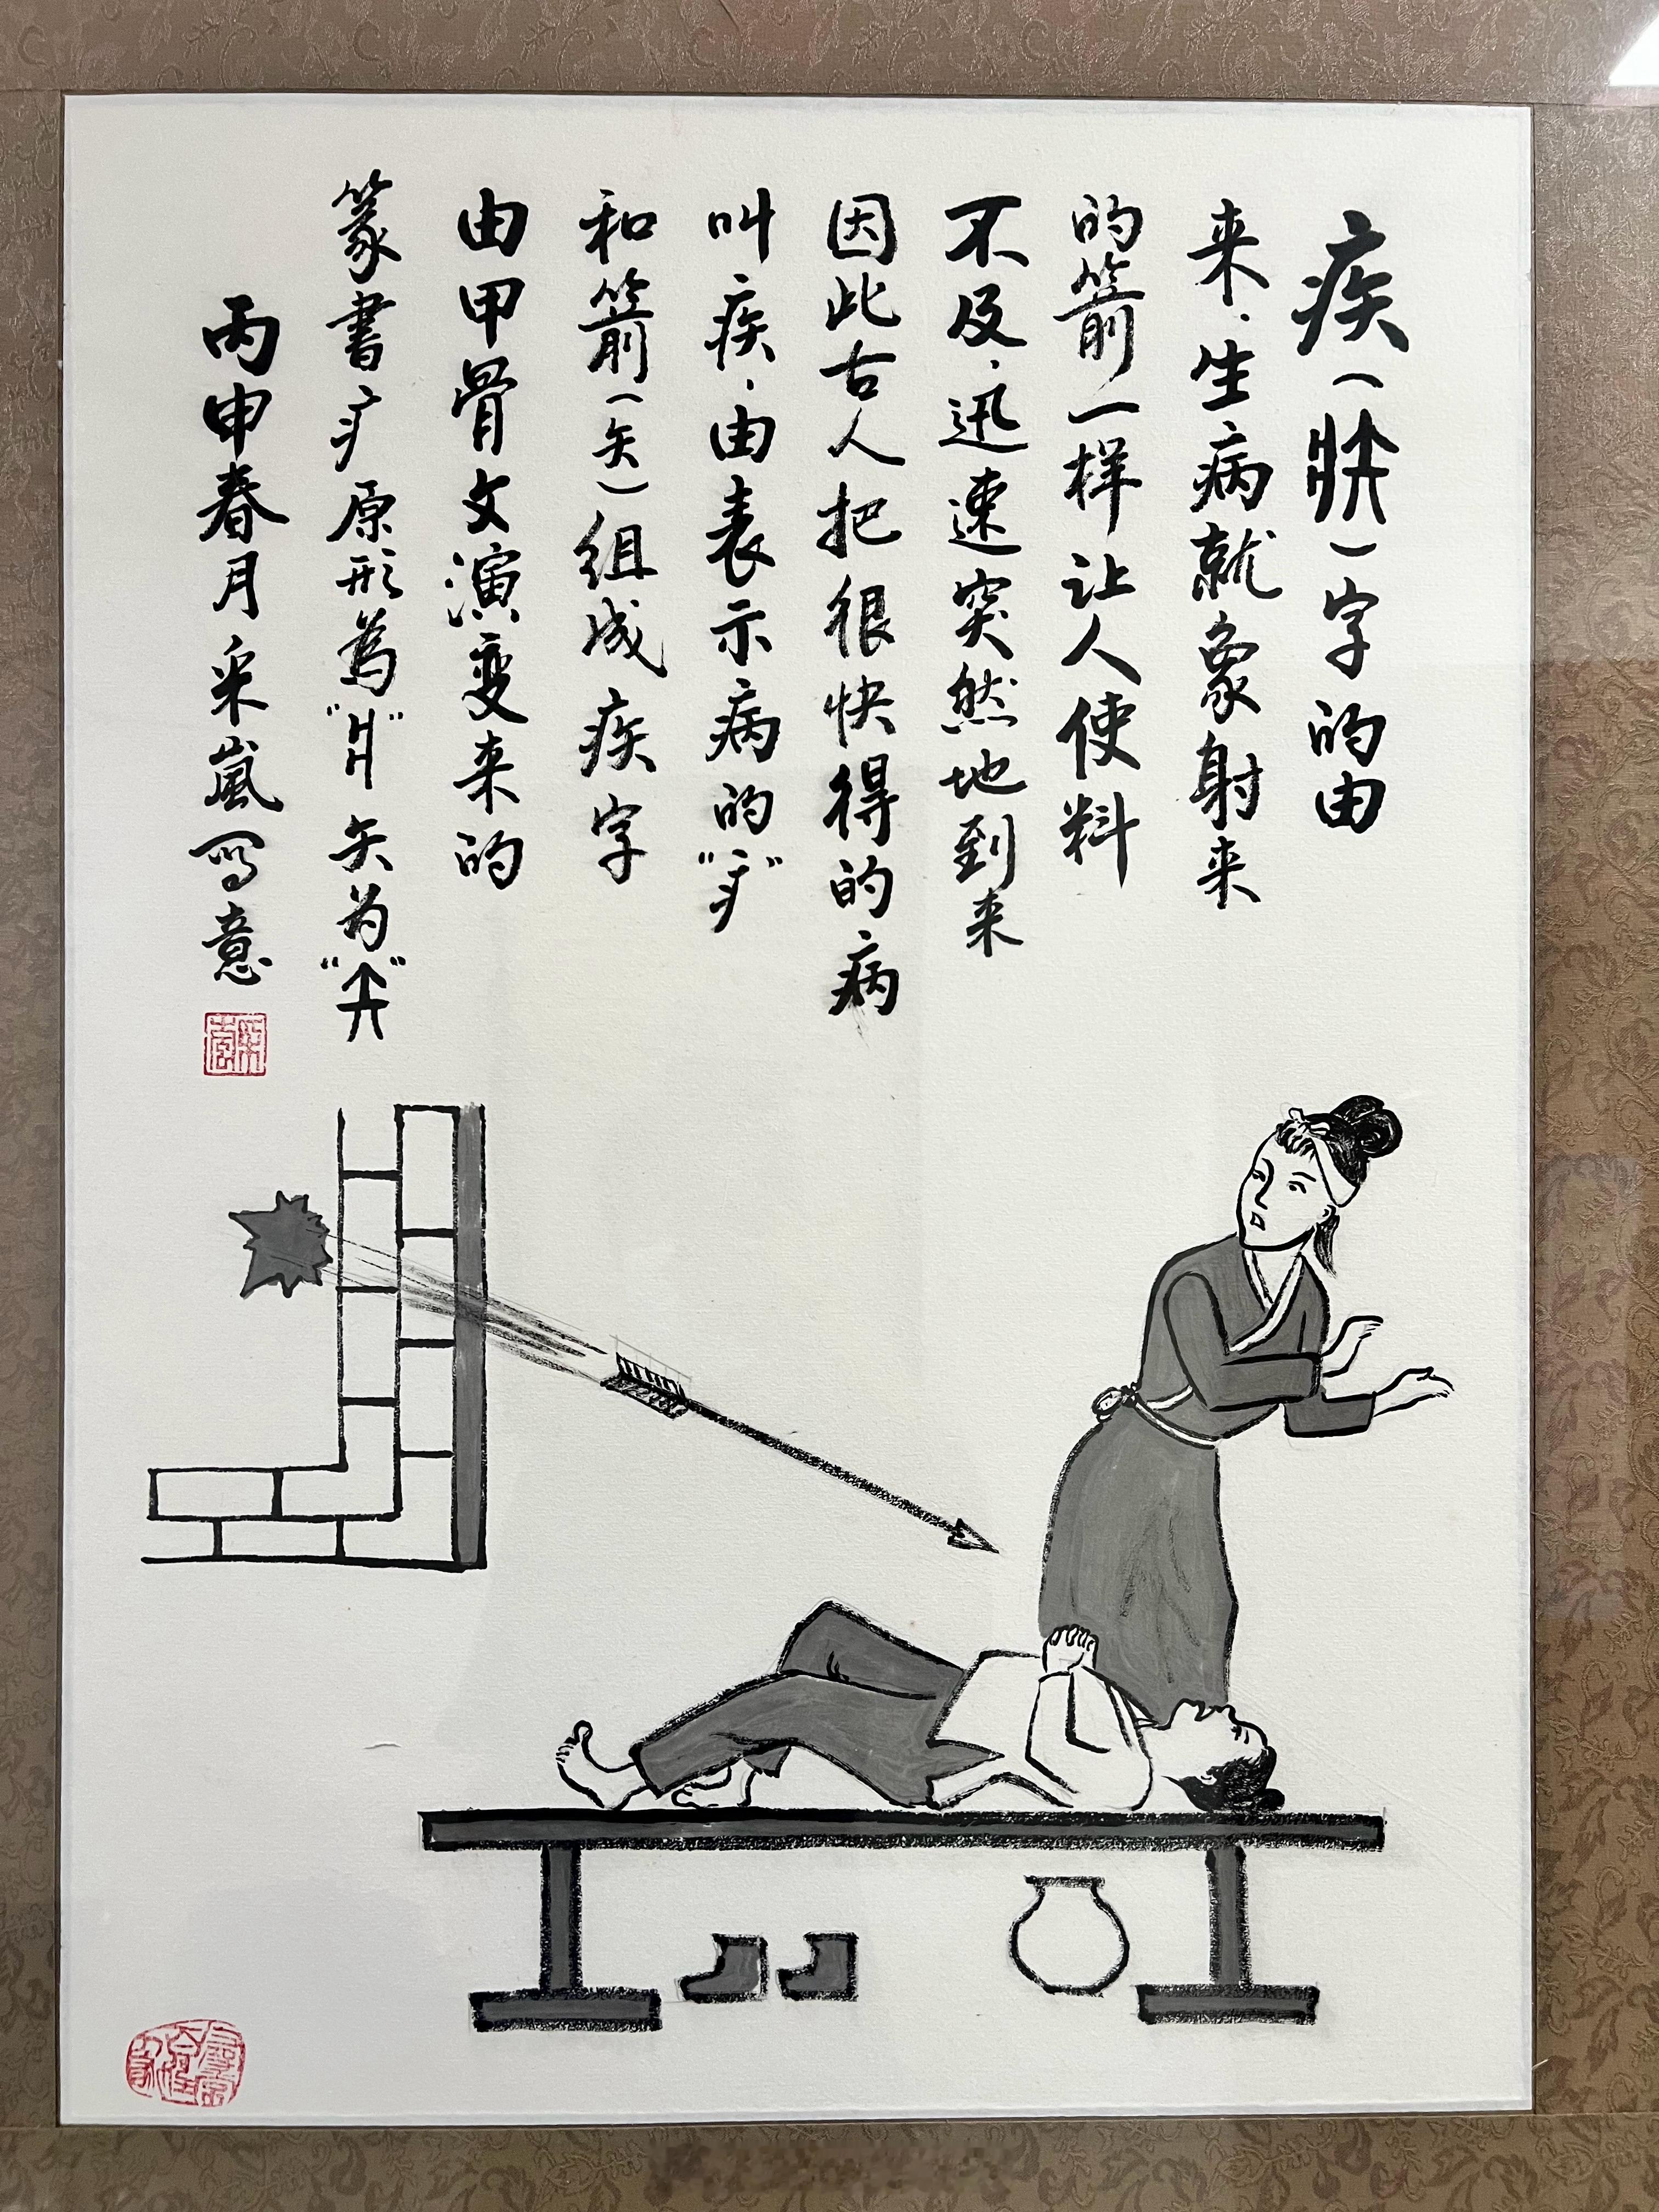 疾（）字的由
来．生病就象射来
的箭一样让人使料
不及．迅速突然地到来
因此古人把很快得的病
叫疾．由表示病的“疒”
和箭（矢）组成疾字
由甲骨文演变来的
篆書疒原形為“爿”矢为“”
丙申春月采嵐写意